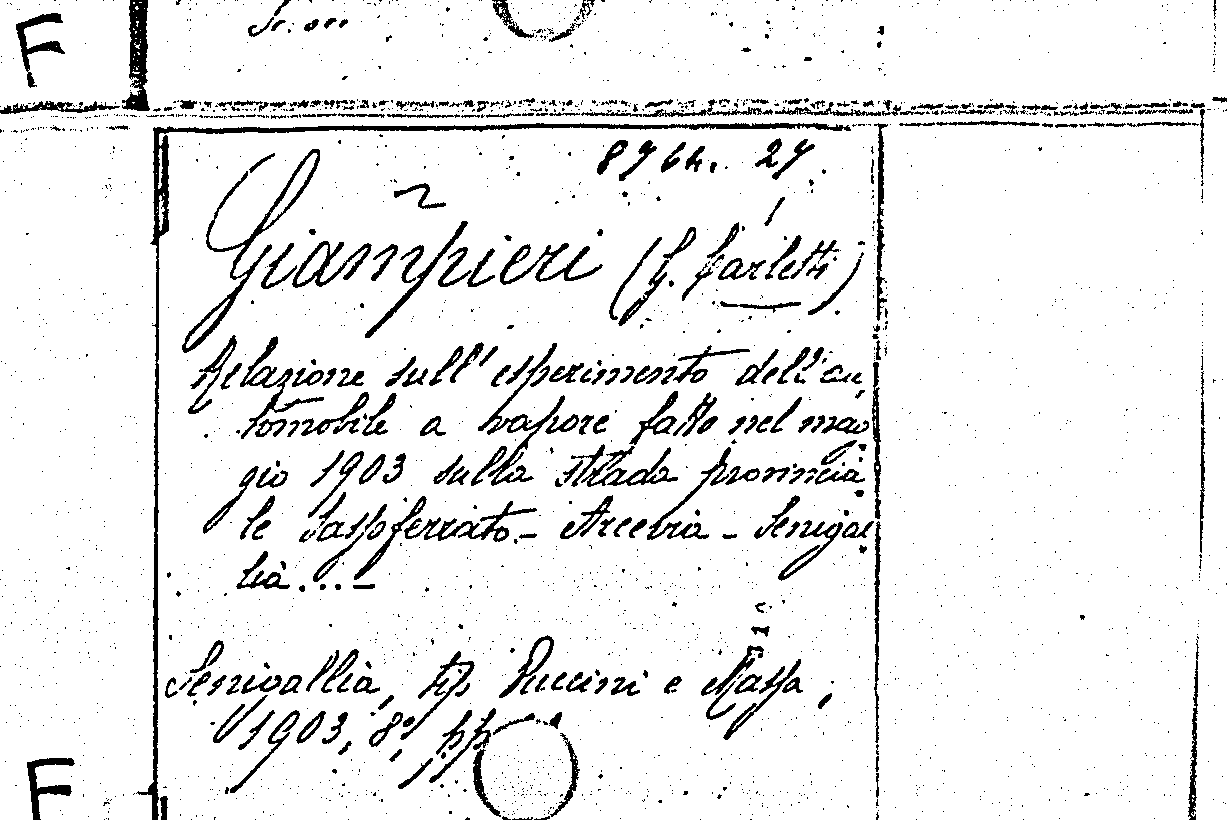 F
8764. 27
Giampieri (G. Carletti)
Relazione sull'esperimento dell'au
tomobile a vapore fatto nel mag
gio 1903 sulla strada provincia
le Sassoferrato - Arcevia - Senigal
lia...-
Senigallia, tip Puccini e Massa,
1903, 8°, pp
F